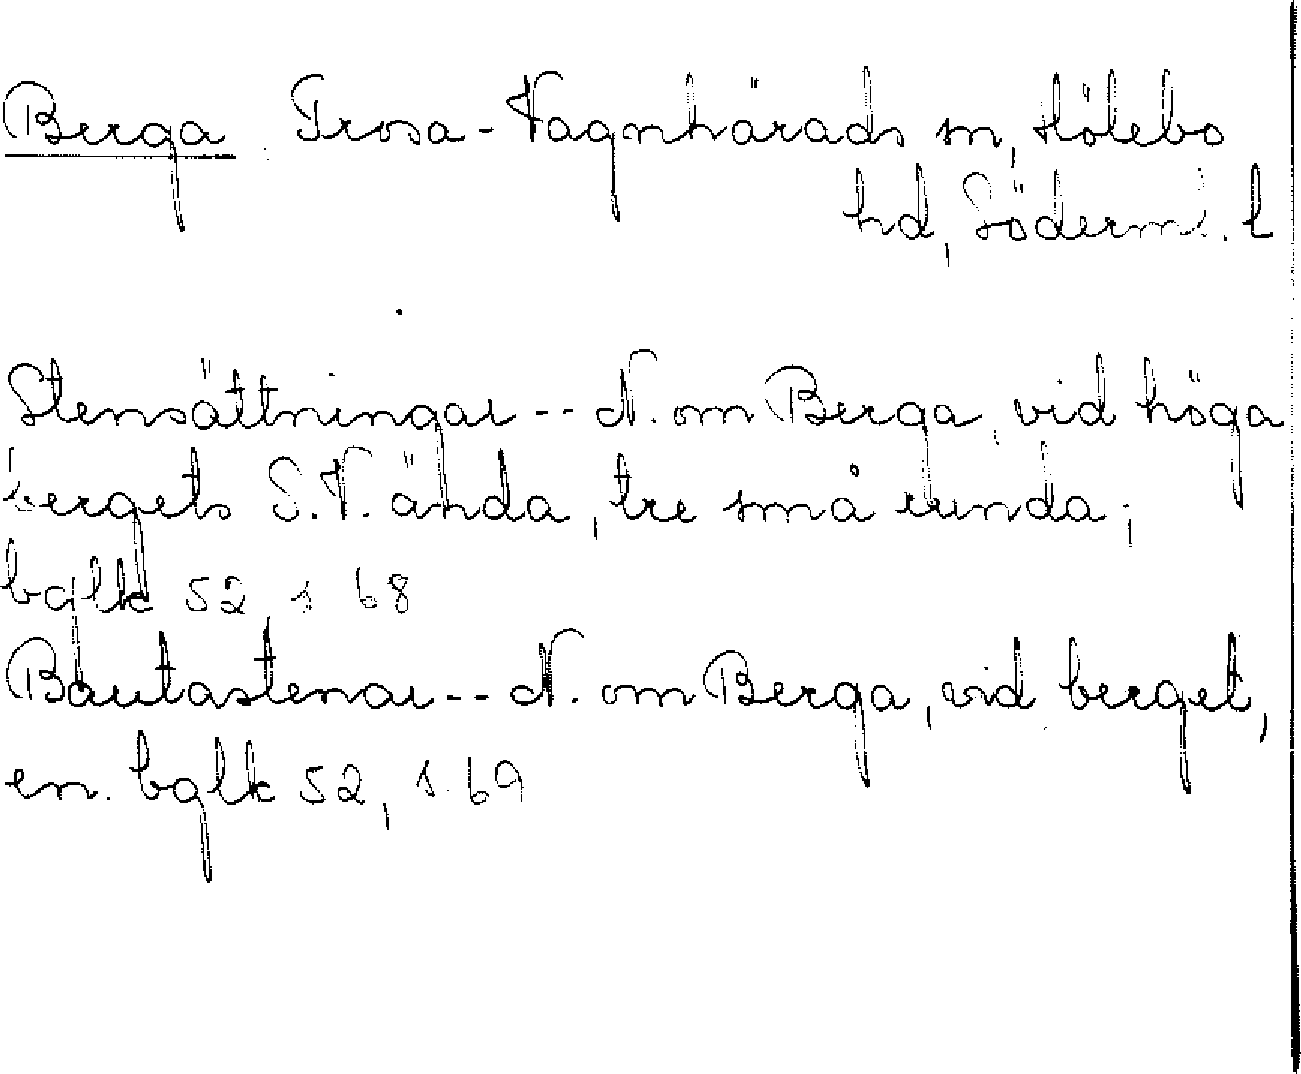 Berga Trosa-Vagnhärads sn, Hölebo
hd, Söderml. l
Stensättningar -- N. om Berga, vid höga
bergets S.V. ända, tre små runda;
bglk 52, s 68
Bautastenar -- N. om Berga, vid berget,
en. bglk 52, s. 69